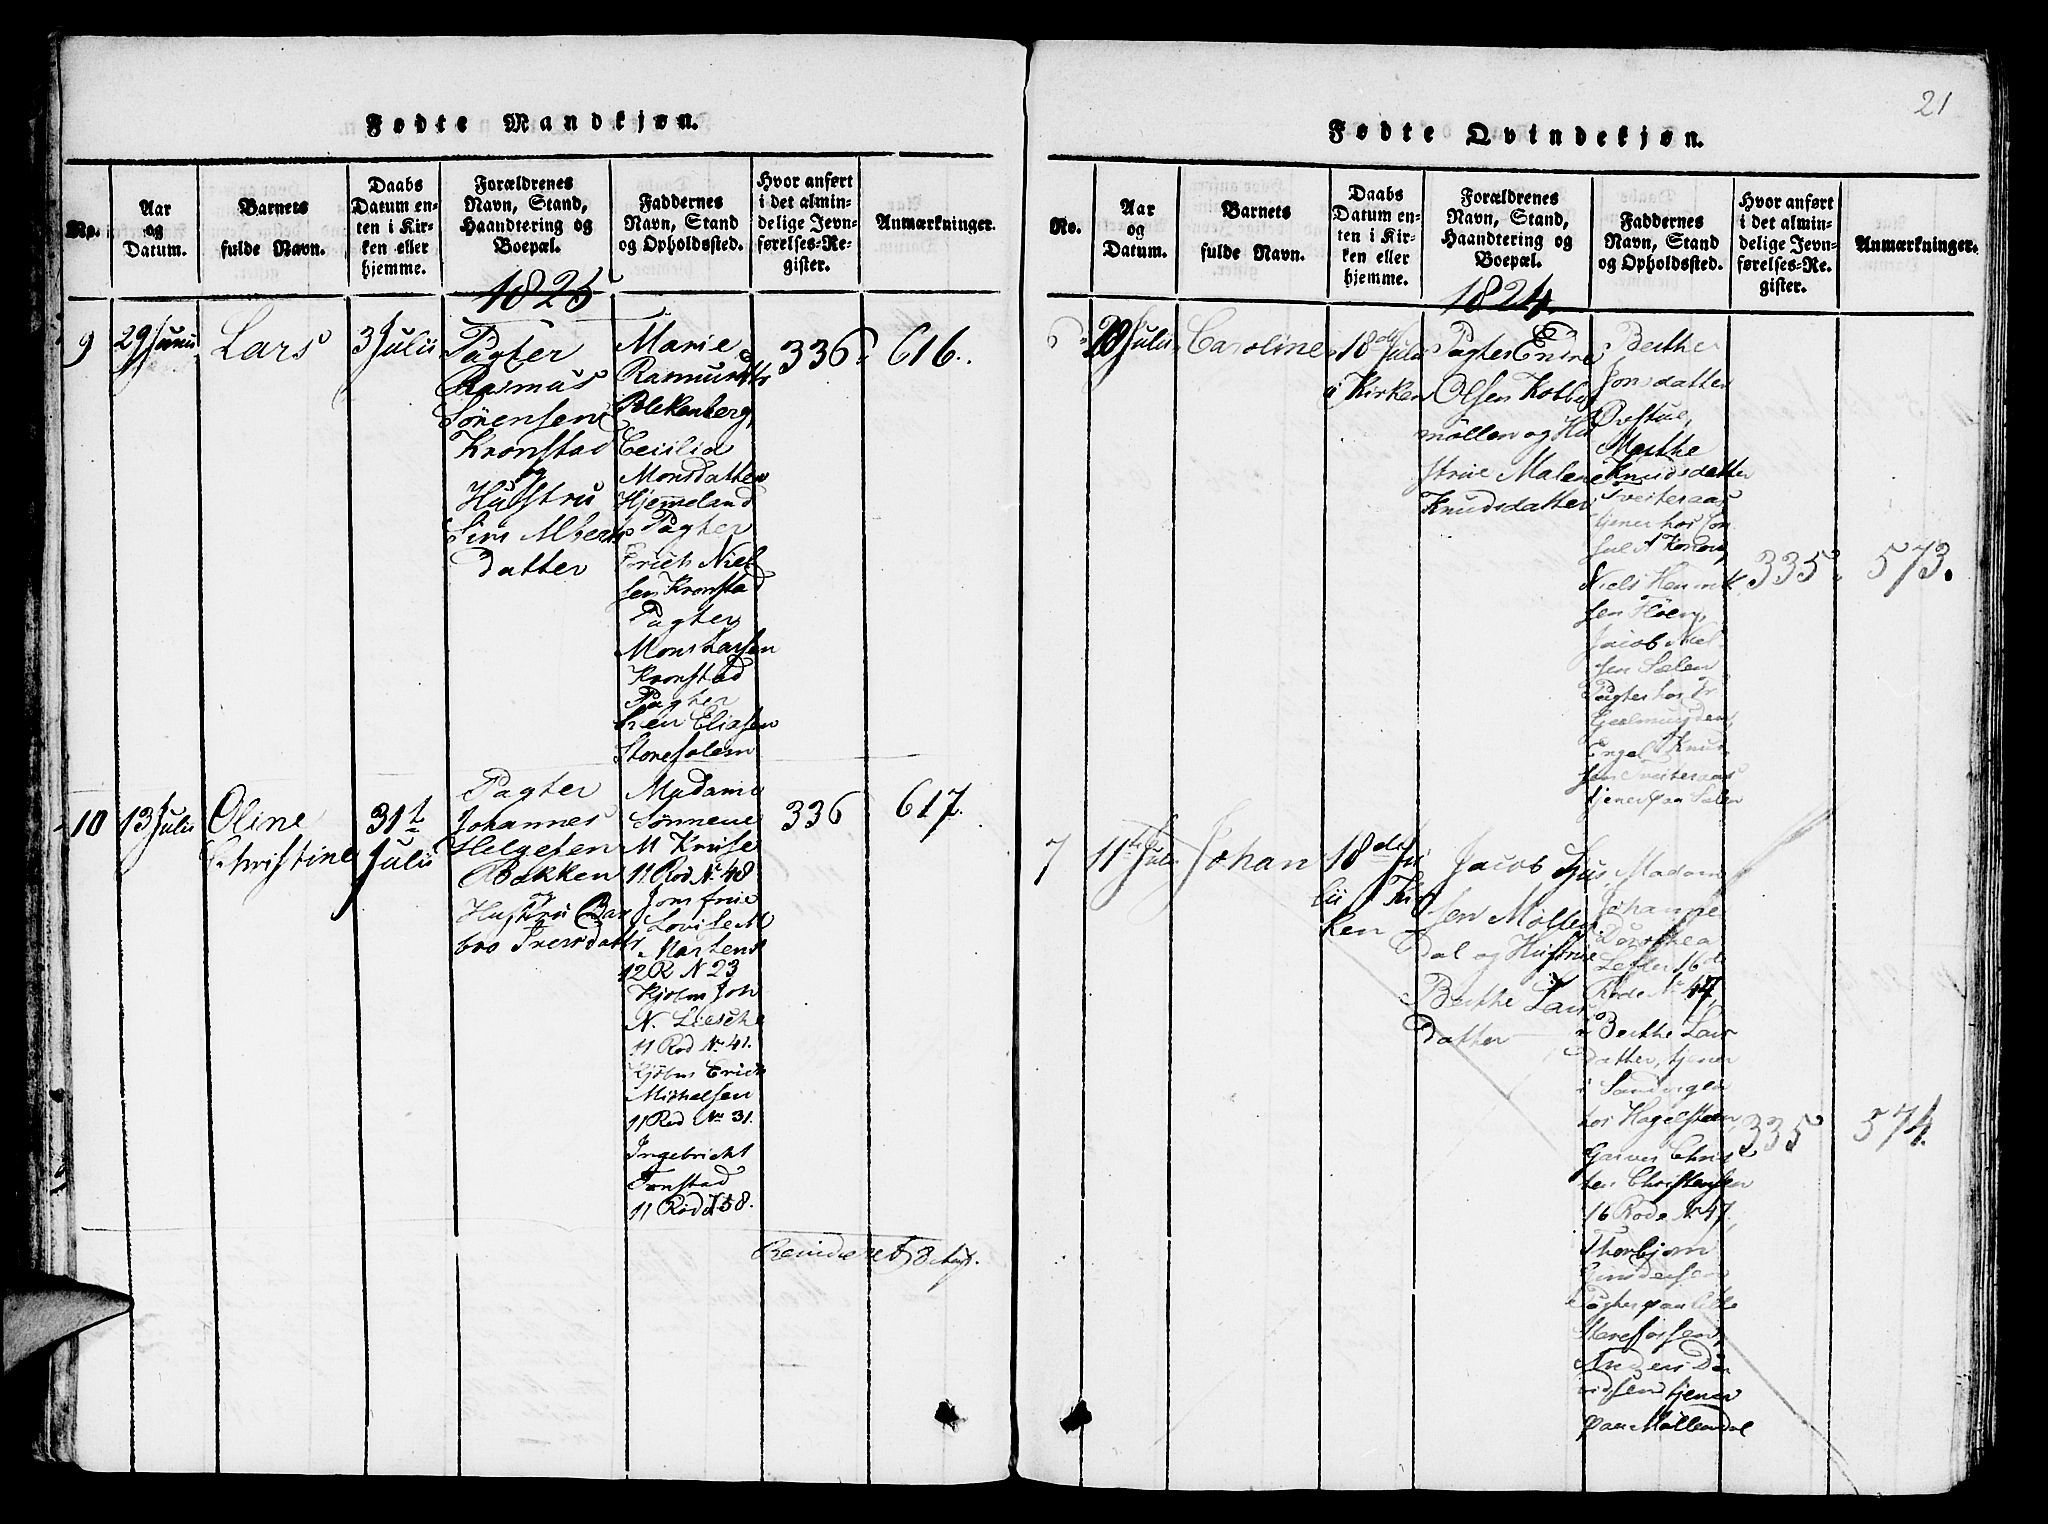 21
Fødte Mandkjøn.
No.
Aar
og
Datum.
Barnets
fulde Navn.
Daabs
Datum en-
ten i Kir-
ken eller
hjemme.
Forældrenes
Navn, Stand,
Haandtering og
Boepæl.
Faddernes
Navn, Stand
og Opholdssted.
Hvor anført
i det almin-
delige Jevn-
førelses-Re-
gister.
Anmærkninger.
1825
9
29 Junii
Lars
3 Julii
Pagter
Rasmus
Sørensen
Kronstad
og
Hustru
Siri Alberts
datter
Marie
Rasmusdtr
Blekenberg,
Cecilia
Monsdatter
Hjemeland
Pagter
Erich Niel
sen Kronstad
Pagter
Mons Larsen
Kronstad
Pagter
Eliasen
Storesolem
336
616.
10
13 Julii
Oline
Christine
31t
Julii
Pagter
Johannes
Helgesen
Bakken
og
Hustru Bar
bro Iversdattr
Madame
Sønneve
M Kruse
11 Rod No 48
Jomfrue
Lovise M
Martens
12 R N 23
Kjøbm Joh
N. Liesche
11 Rod No 41.
Kjøbm Erich
Michelsen
11 Rod No 31.
Ingebricht
Tønstad
11 Rod 158.
336
617.
Fødte Qvindekjøn.
No.
Aar
og
Datum.
Barnets
fulde Navn.
Daabs
Datum en-
ten i Kir-
ken eller
hjemme.
Forældrenes
Navn, Stand,
Haandtering og
Boepæl.
Faddernes
Navn, Stand
og Opholdssted.
Hvor anført
i det almin-
delige Jevn-
førelses-Re-
gister.
Anmærkninger.
1824.
6
Julii
Caroline
18de Julii
i Kirken
Pagter Endre
Olsen Kolbe
møllen og Hu
strue Malene
Knudsdatter
Berthe
Jonsdatter
Øvstue,
Marthe
Knudsdatter
Tveiteraas
tjener hos Con
sul A Konow
Niels Henrik
sen Fløen,
Jacob Niel
sen Sælen
Pagter hos Fr
Engel Knud
sen Tveiteraas
tjener paa Sælen
335
573.
7
11te Julii
Johan
18de Ju
lii i Kir
ken
Jacob Sjur
sen Mølle
dal og Hustrue
Berthe Lars
datter
Madam
Johanne
Dorothea
16de
Rode No 47,
Berthe Lars
datter, tjener
i Sandvigen
hos Hagelsteen,
Garver Chris
ten Christensen
16 Rode No 47,
Thorbjørn
Pagter paa lille
Anders Da
vidsen tjener
paa Møllendal
335
574.